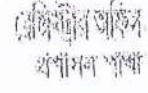 রেজিস্ট্রার অফিস
প্রশাসন শাখা